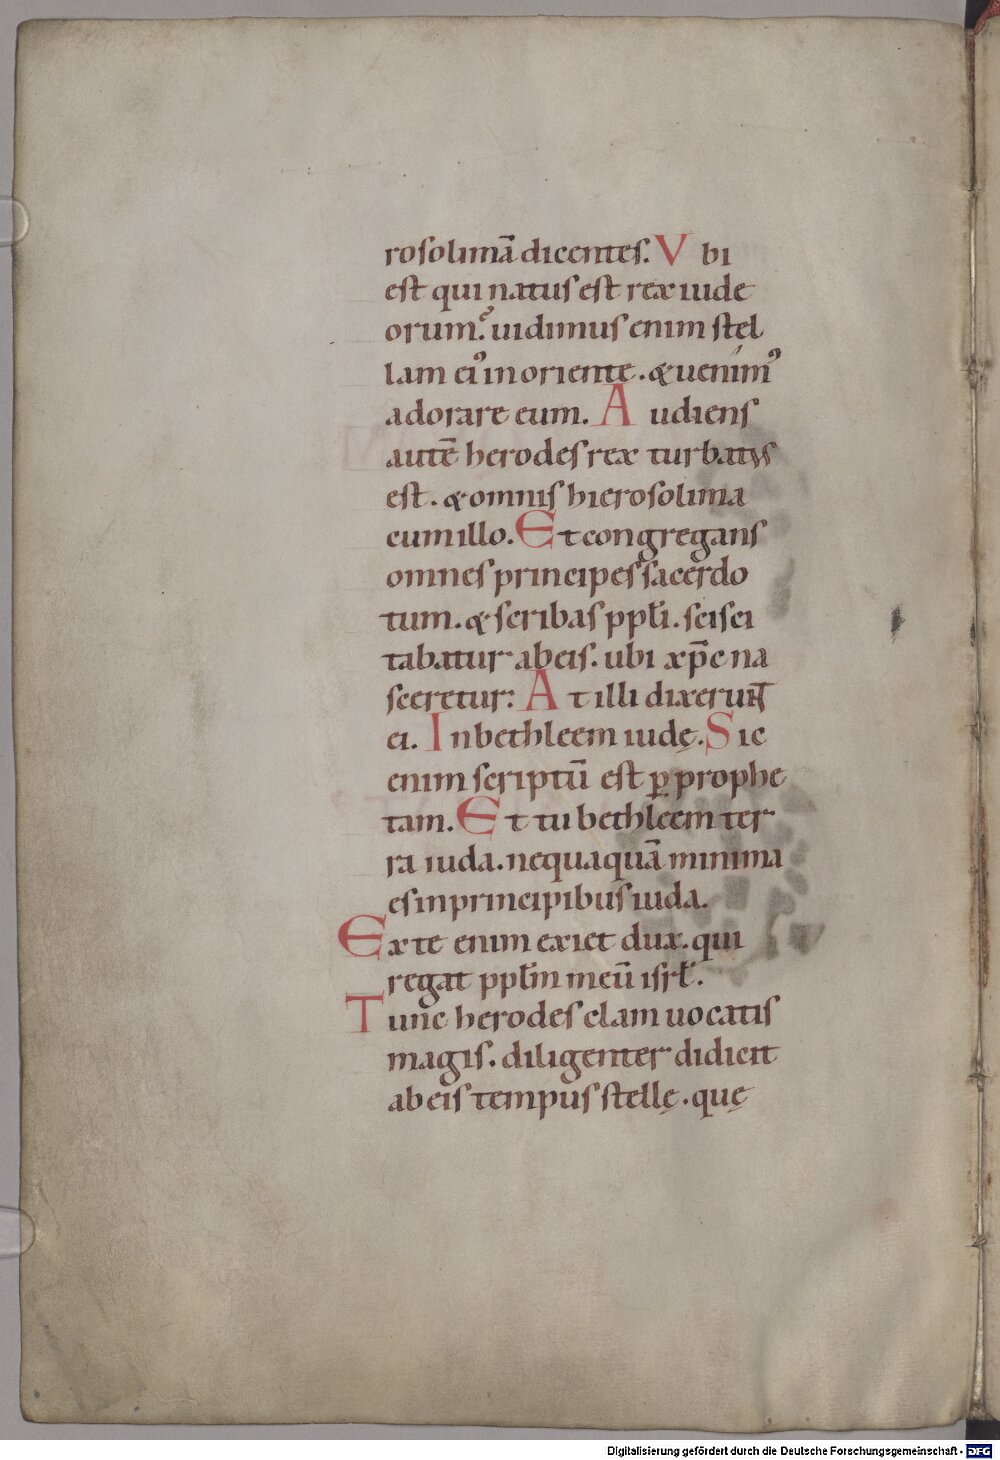 rosolimā dicentes. Vbi
est qui natus est rex iude
orum? uidimus enim stel
lam ei᾿ in oriente. & uenim᾿
adorare eum. Audiens
autē herodes rex turbatus
est. & omnis hierosolima
cum illo. Et congregans
omnes principes sacerdo
tum. & scribas ppłi. scisci
tabatur ab eis. ubi xp̄c na
sceretur: At illi dixerunt
ei. In bethleem iudę. Sic
enim scriptū est ꝑ prophe
tam. Et tu bethleem ter
ra iuda. nequaquā minima
es in principibus iuda.
Ex te enim exiet dux. qui
regat ppłm meū isrł.
Tunc herodes clam uocatis
magis. diligenter didicit
ab eis tempus stellę. quę
Digitalisierung gefördert durch die Deutsche Forschungsgemeinschaft - DFG